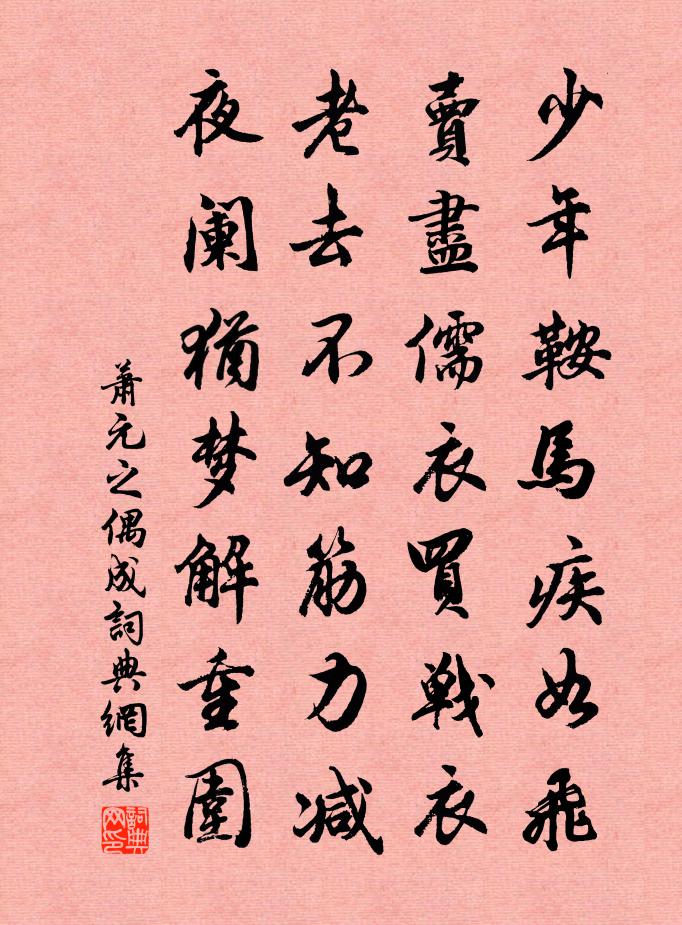 少年鞍馬疾如飛
賣盡儒衣買戰衣
老去不知筋力減
夜闌猶夢解重圍
蕭元之偶成詞典網集
詞典网印